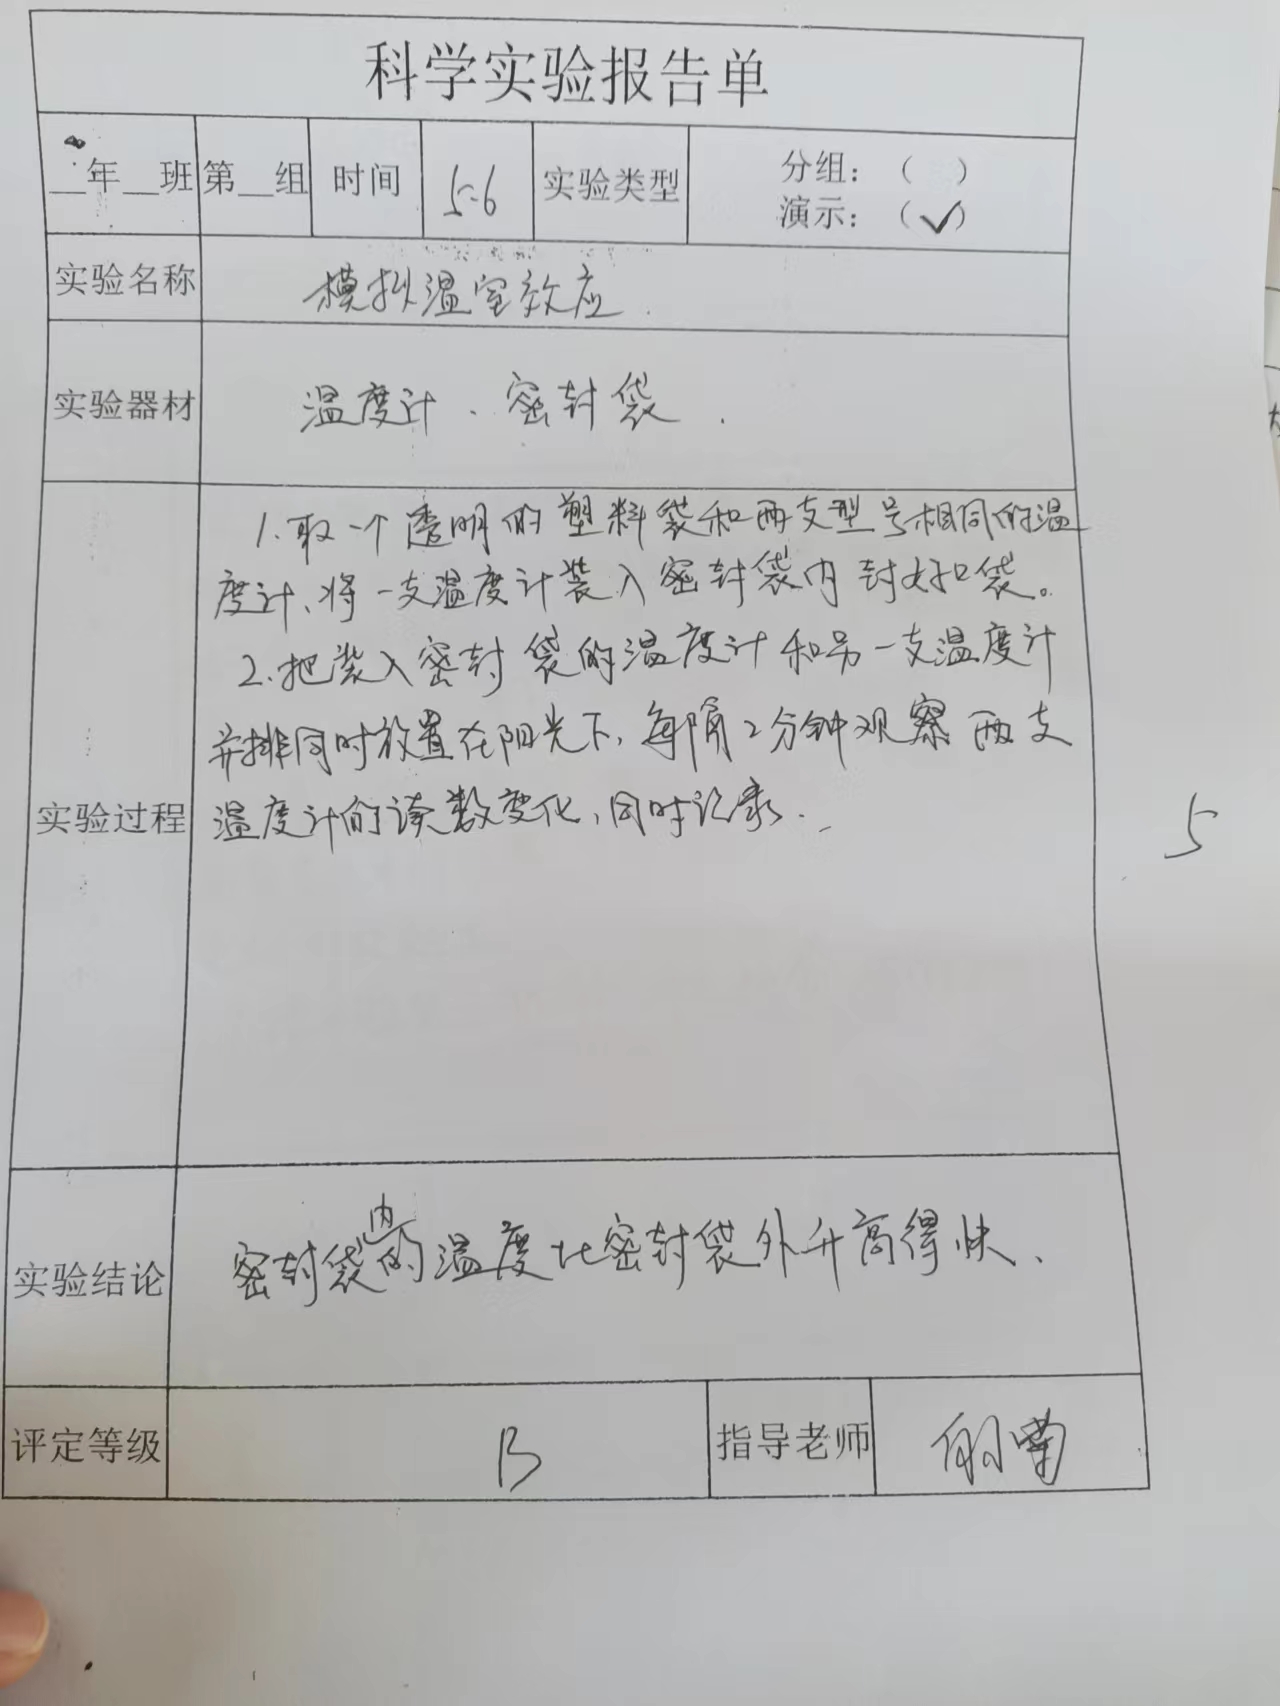 科学实验报告单
__年__班 第__组 时间 5.6 实验类型 分组：（ ）
演示：（✓）
实验名称 模拟温室效应.
实验器材 温度计、密封袋.
1.取一个透明的塑料袋和两支型号相同的温
度计、将一支温度计装入密封袋内封好口袋。
2.把装入密封袋的温度计和另一支温度计
并排同时放置在阳光下,每隔2分钟观察两支
实验过程 温度计的读数变化,同时记录.
5
实验结论 密封袋内的温度比密封袋外升高得快、
评定等级 B 指导老师